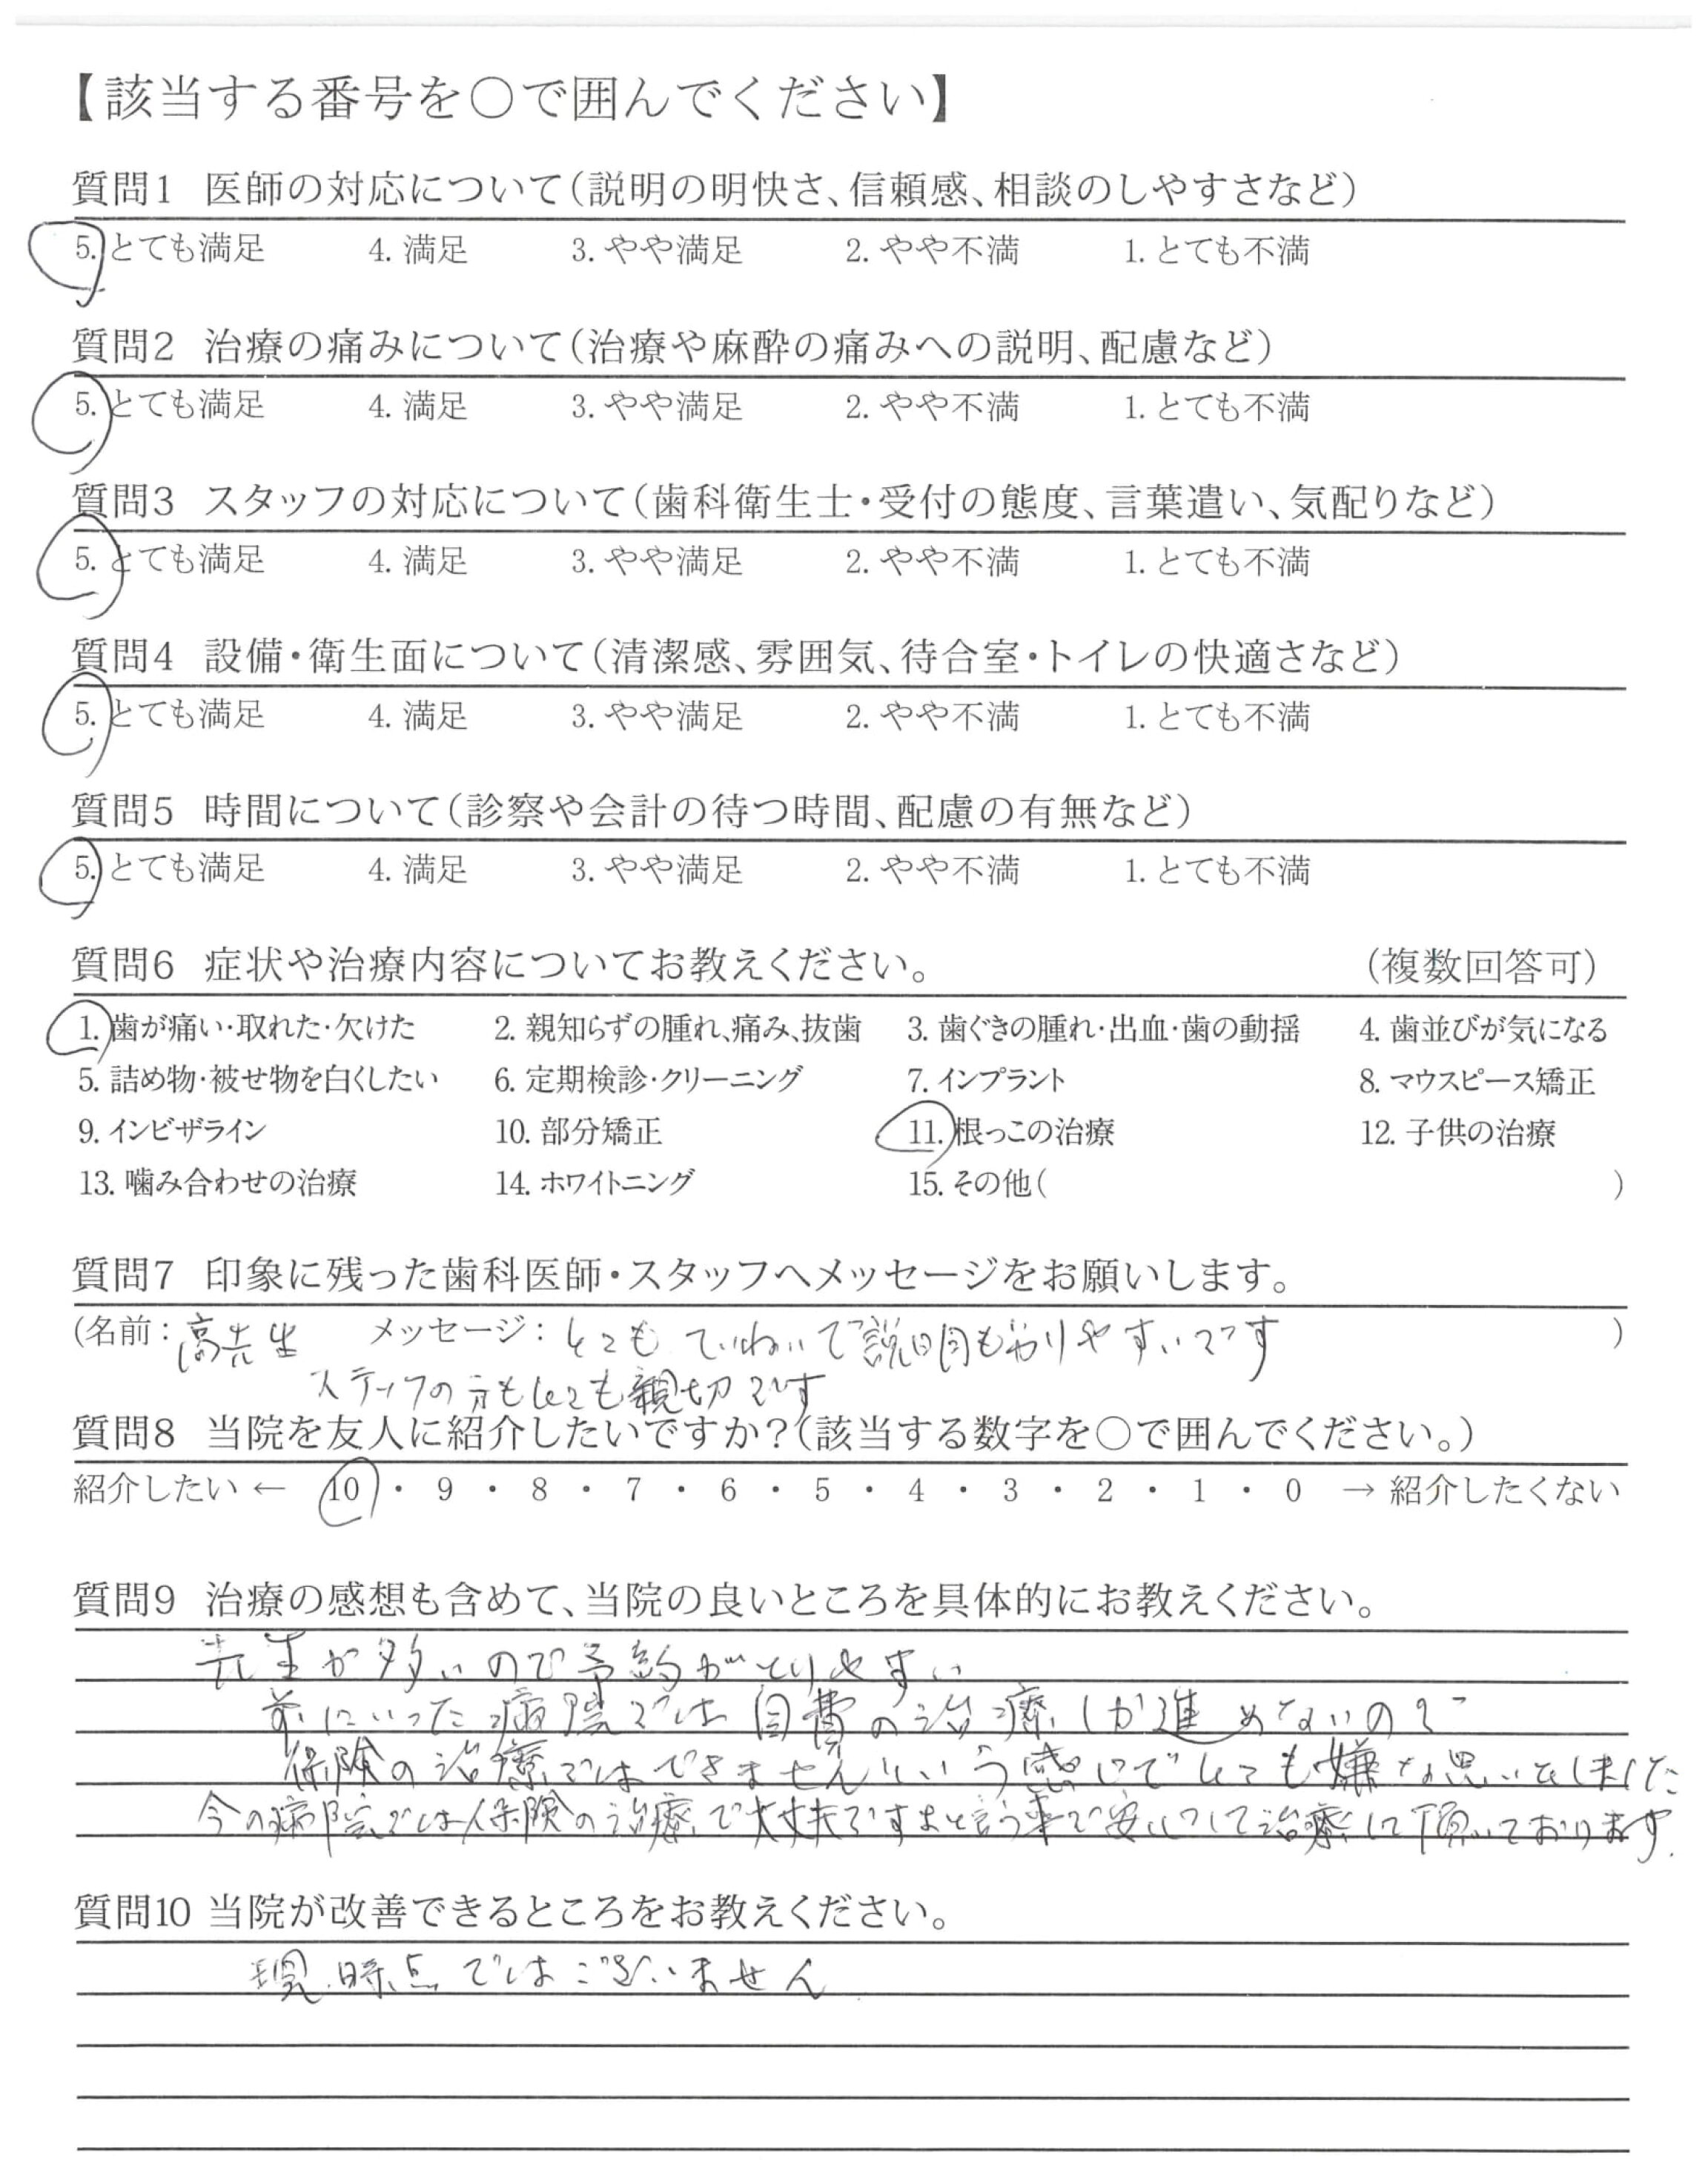 【該当する番号を○で囲んでください】
質問1 医師の対応について(説明の明快さ、信頼感、相談のしやすさなど)
5. とても満足 4. 満足 3. やや満足 2. やや不満 1. とても不満
質問2 治療の痛みについて(治療や麻酔の痛みへの説明、配慮など)
5. とても満足 4. 満足 3. やや満足 2. やや不満 1. とても不満
質問3 スタッフの対応について(歯科衛生士・受付の態度、言葉遣い、気配りなど)
5. とても満足 4. 満足 3. やや満足 2. やや不満 1. とても不満
質問4 設備・衛生面について(清潔感、雰囲気、待合室・トイレの快適さなど)
5. とても満足 4. 満足 3. やや満足 2. やや不満 1. とても不満
質問5 時間について(診察や会計の待つ時間、配慮の有無など)
5. とても満足 4. 満足 3. やや満足 2. やや不満 1. とても不満
質問6 症状や治療内容についてお教えください。 (複数回答可)
1. 歯が痛い・取れた・欠けた 2. 親知らずの腫れ、痛み、抜歯 3. 歯ぐきの腫れ・出血・歯の動揺 4. 歯並びが気になる
5. 詰め物・被せ物を白くしたい 6. 定期検診・クリーニング 7. インプラント 8. マウスピース矯正
9. インビザライン 10. 部分矯正 11. 根っこの治療 12. 子供の治療
13. 噛み合わせの治療 14. ホワイトニング 15. その他( )
質問7 印象に残った歯科医師・スタッフへメッセージをお願いします。
(名前：高先生 メッセージ：とても ていねいで説明も分りやすいです )
スタッフの方もとても親切です
質問8 当院を友人に紹介したいですか？(該当する数字を○で囲んでください。)
紹介したい ← 10 ・ 9 ・ 8 ・ 7 ・ 6 ・ 5 ・ 4 ・ 3 ・ 2 ・ 1 ・ 0 → 紹介したくない
質問9 治療の感想も含めて、当院の良いところを具体的にお教えください。
先生が多いので予約がとりやすい
前にいった病院では自費の治療しか進めないので
保険の治療ではできませんという感じでとても嫌な思いをしました
今の病院では保険の治療で大丈夫ですよと言う事で安心して治療して頂いております.
質問10 当院が改善できるところをお教えください。
現時点ではございません